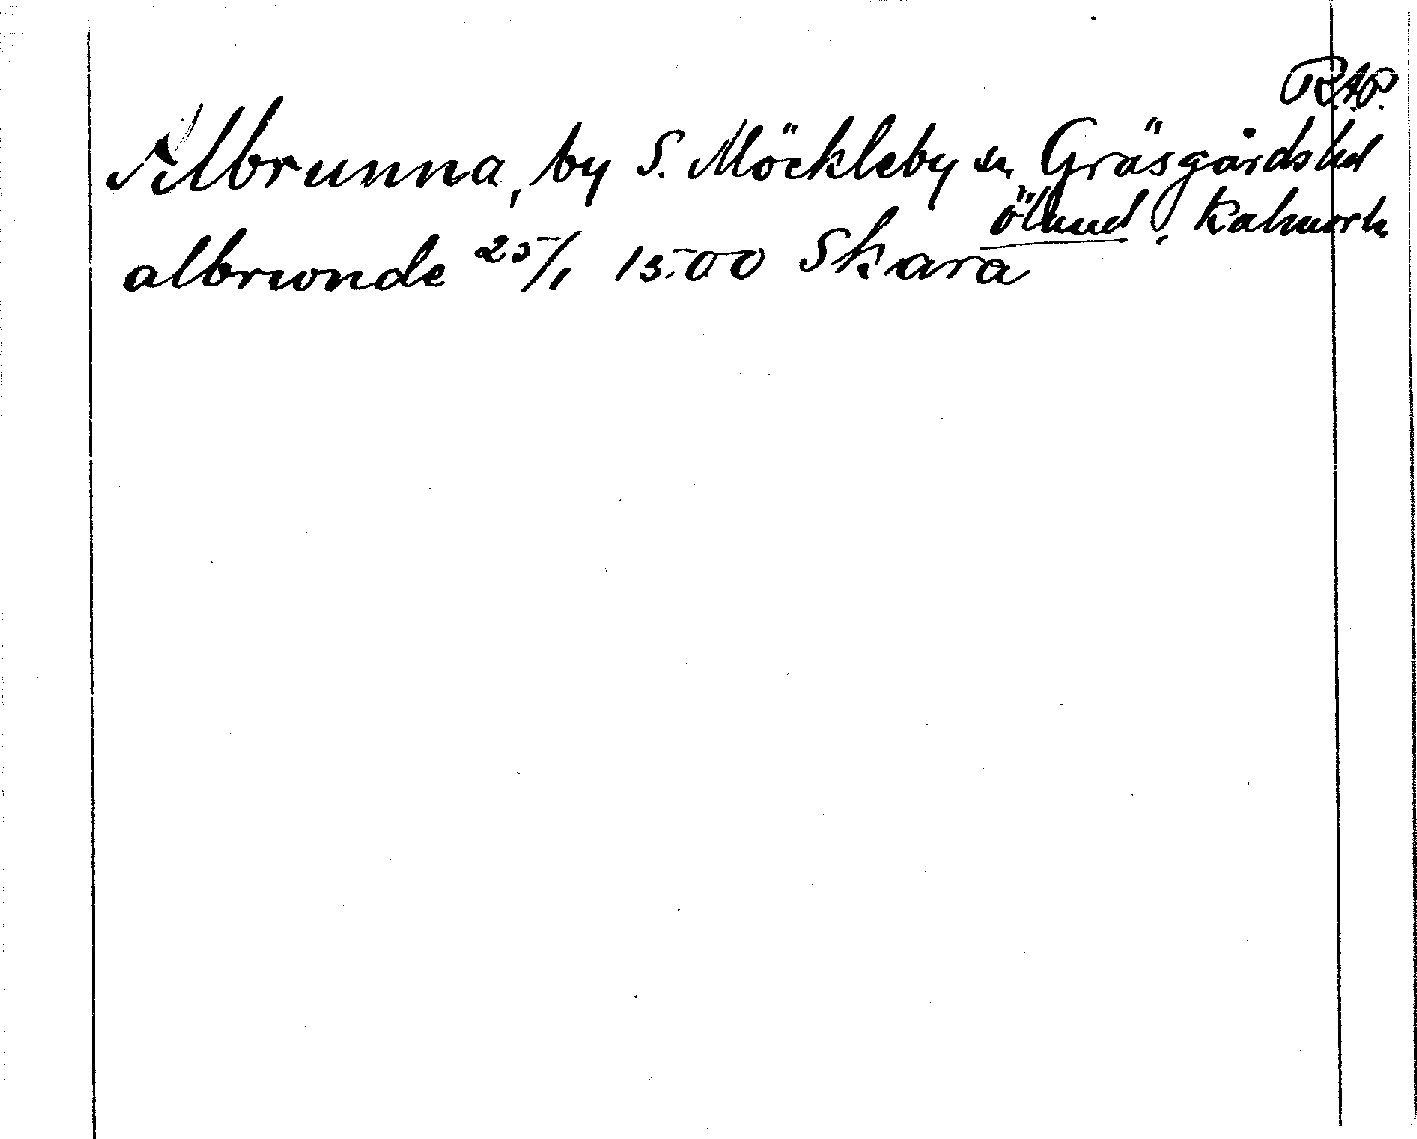 RAP.
Albrunna, by S. Möckleby sn Gräsgårds hd
Öland, Kalmar l.
albrwnde 25/1 1500 Skara